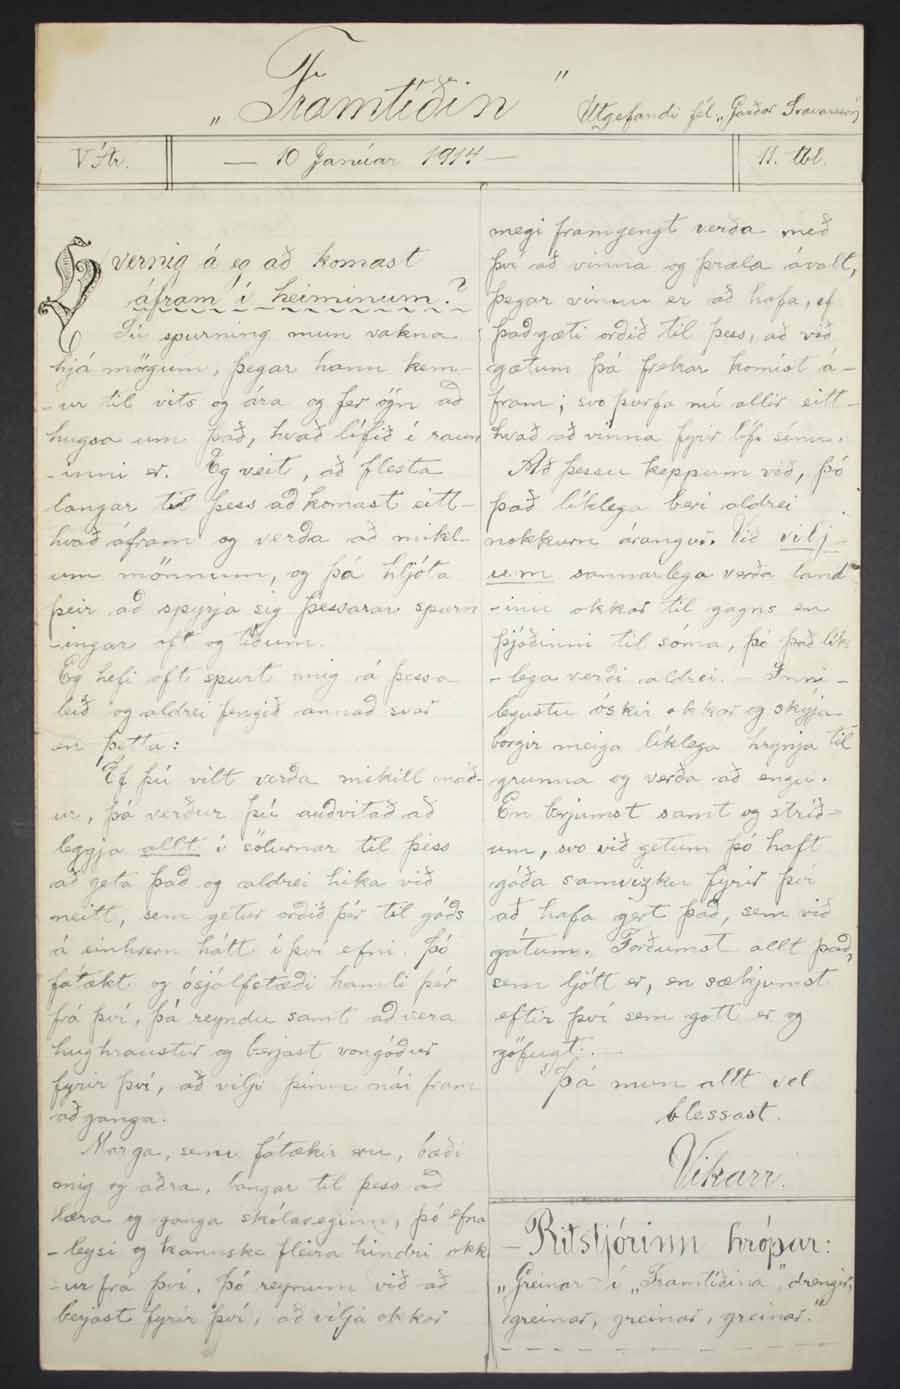 „Framtíðin“
Útgefandi fél. „Garðar Svavarsson“
V Ár.
— 10 Janúar 1914 —
11. tbl.
Hvernig á eg að komast
áfram í heiminum?
Sú spurning mun vakna
hjá mörgum, þegar hann kem-
-ur til vits og ára og fer ögn að
hugsa um það, hvað lífið í raun
-inni er. Eg veit, að flesta
langar til þess að komast eitt-
hvað áfram og verða að mikl-
um mönnum, og þá hljóta
þeir að spyrja sig þessarar spurn
-ingar oft og tíðum.
Eg hefi oft spurt mig á þessa
leið og aldrei fengið annað svar
en þetta:
Ef þú vilt verða mikill mað-
ur, þá verður þú auðvitað að
leggja allt í sölurnar til þess
að geta það og aldrei hika við
neitt, sem getur orðið þér til góðs
á einhvern hátt í því efni. Þó
fátækt og ósjálfstæði hamli þér
frá því, þá reyndu samt að vera
hughraustur og berjast vongóður
fyrir því, að vilji þinn nái fram
að ganga.
Marga, sem fátækir eru, bæði
mig og aðra, langar til þess að
læra og ganga skólaveginn, þó efna
-leysi og kannske fleira hindri okk
-ur frá því. Þó reynum við að
berjast fyrir því, að vilja okkar
megi framgengt verða með
því að vinna og þræla ávalt,
þegar vinnu er að hafa, ef
það gæti orðið til þess, að við
gætum þá frekar komist á-
fram; svo þurfa nú allir eitt-
hvað að vinna fyrir lífi sínu.
Að þessu keppum við, þó
það líklega beri aldrei
nokkurn árangur. Við vilj-
um sannarlega verða land
-inu okkar til gagns en
þjóðinni til sóma, þó það lík
-lega verði aldrei. — Inni-
legustu óskir okkar og skýja-
borgir meiga líklega hrynja til
grunna og verða að engu.
En berjumst samt og stríð-
um, svo við getum þó haft
góða samvizku fyrir því
að hafa gert það, sem við
gátum. Forðumst allt það,
sem ljótt er, en sækjumst
eftir því sem gott er og
göfugt. —
Þá mun allt vel
blessast.
Vikarr.
— Ritstjórinn hrópar:
„Greinar í „Framtíðina“, drengir,
greinar, greinar, greinar.“